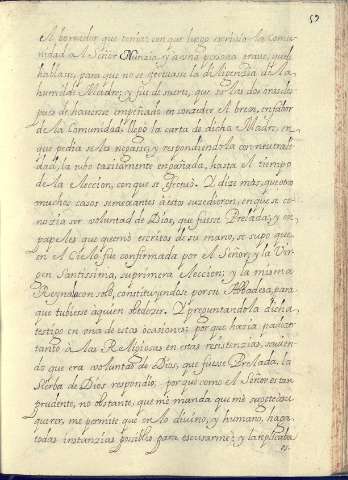 59
el borrador que tenia; con que luego escriuio la Comu-
nidad a el Señor Nunzio, y a una persona graue, que le
hablase, para que no se efectuase la diligencia de la
humilde Madre; y fue de suerte, que
puso de hauerse empeñado en conceder el breue, en fabor
de la Comunidad. llegó la carta de dicha Madre, en
que pedia se las negasse, y respondiendola con neutrali-
dad, la tubo tazitamente engañada, hasta el tiempo
de la eleccion, con que se efectuó. Y dize mas, que otros
muchos casos semejantes a este suzedieron, en que se co-
nozia ser voluntad de Dios, que fuesse Prelada; y en
papeles que quemó escritos de su mano, se supo, que
en el Cielo fue confirmada por el Señor, y la Vir-
gen Santissima, su primera eleccion; y la misma
Reyna consoló, constituyendose por su Abbadesa, para
que tubiesse a quien obedezer. Y preguntandola dicha
testigo en una de estas ocasiones, por que hazia padezer
tanto a las Religiosas en estas resistenzias, sauien-
do que era voluntad de Dios, que fuesse Prelada, la
Sierba de Dios respondio, porque como el Señor es tan
prudente, no obstante, que me manda que me sugete a su
querer, me permite que en lo diuino, y humano, haga
todas instanzias posibles para escusarme; y la replicaba